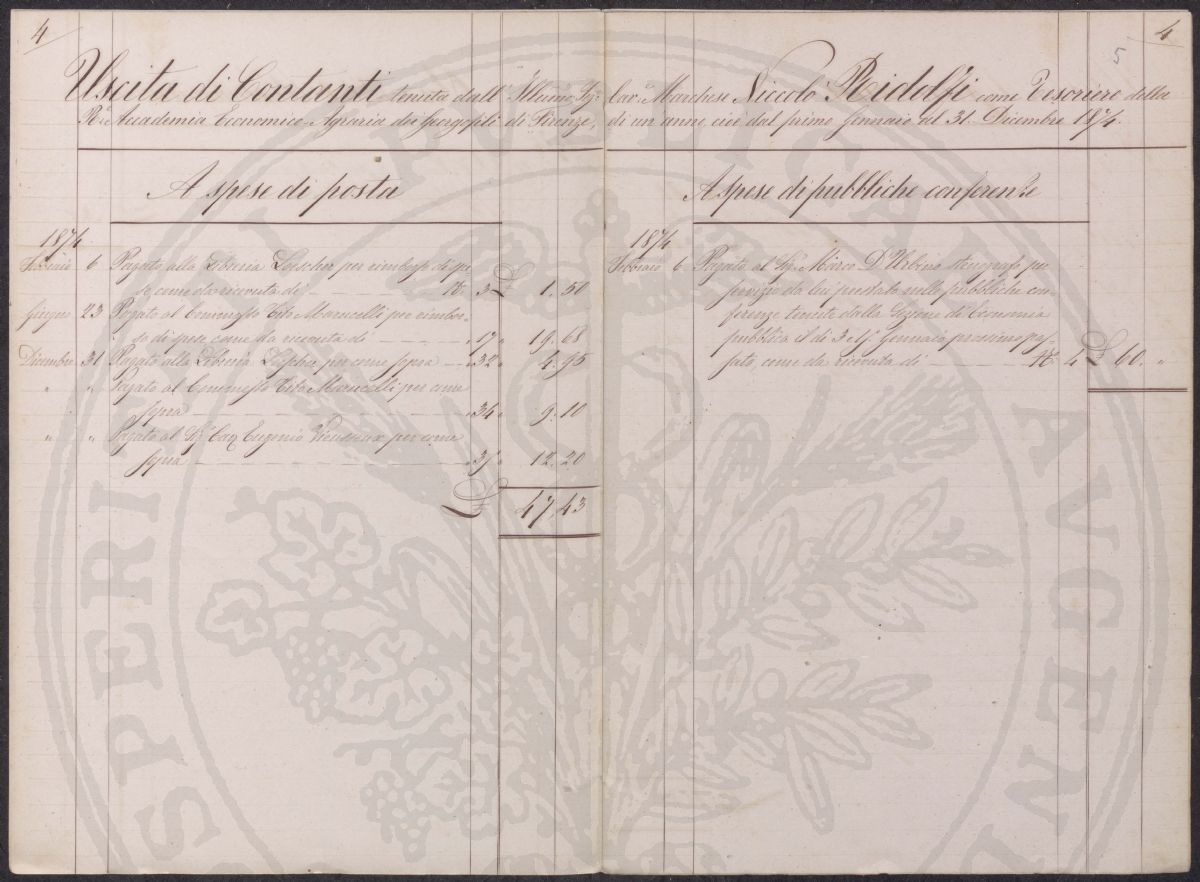 4
Uscita di Contanti tenuta dall' Illmo. Sig:
R. Accademia Economico-Agraria dei Georgofili di Firenze,
A spese di posta
1874
Febbraio 6 Pagato alla Libreria Loescher per rimborso di spe
se come da ricevuta di No. 3 £ 1.50
Giugno 23 Pagato al Commesso Tito Marucelli per rimbor-
so di spese come da ricevuta di „ 17 „ 19.68
Dicembre 31 Pagato alla Libreria Loescher per come sopra „ 32 „ 4.95
„ „ Pagato al Commesso Tito Marucelli per come
sopra „ 34 „ 9.10
„ „ Pagato al Sig. Cav. Eugenio Vieusseux per come
sopra „ 35 „ 12.20
£ 47.43
4
5
Cav. Marchese Niccolò Ridolfi come Tesoriere della
di un anno, cioè dal primo Gennaio al 31. Dicembre 1874.
A spese di pubbliche conferenze
1874
Febbraio 6 Pagato al Sig. Marco D'Urbino stenografo per
servizio da lui prestato nelle pubbliche con-
ferenze tenute dalla Sezione di Economia
pubblica il dì 3 e Gennaio prossimo pas-
sato, come da ricevuta di No. 4 £ 60. „
I PUBLICAE
SPERITATI AUGENDAE